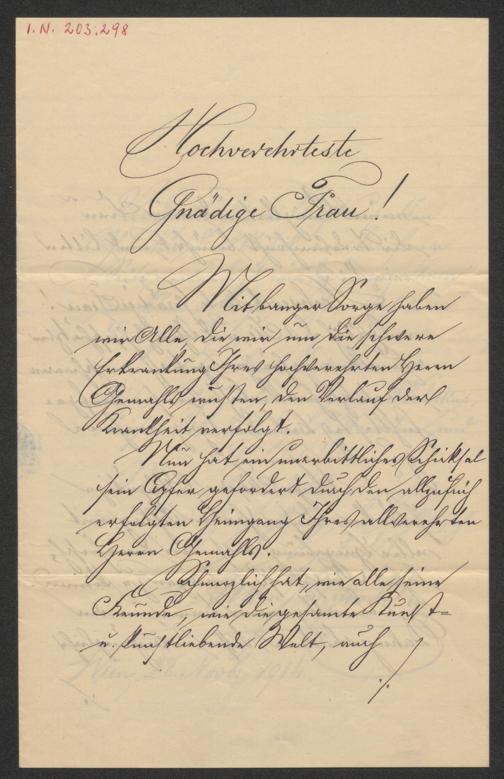 I.N. 203.298
Hochverehrteste
Gnädige Frau!
Mit banger Sorge haben
wir Alle, die wir um die schwere
Erkrankung Ihres hochverehrten Herrn
Gemahls wußten, den Verlauf der
Krankheit verfolgt.
Nun hat ein unerbittliches Schicksal
sein Opfer gefordert durch den allzufrüh
erfolgten Heimgang Ihres allverehrten
Herrn Gemahls.
Schmerzlich hat, wie alle seine
Freunde, wie die gesamte Kunst-
u. kunstliebende Welt, auch
./.